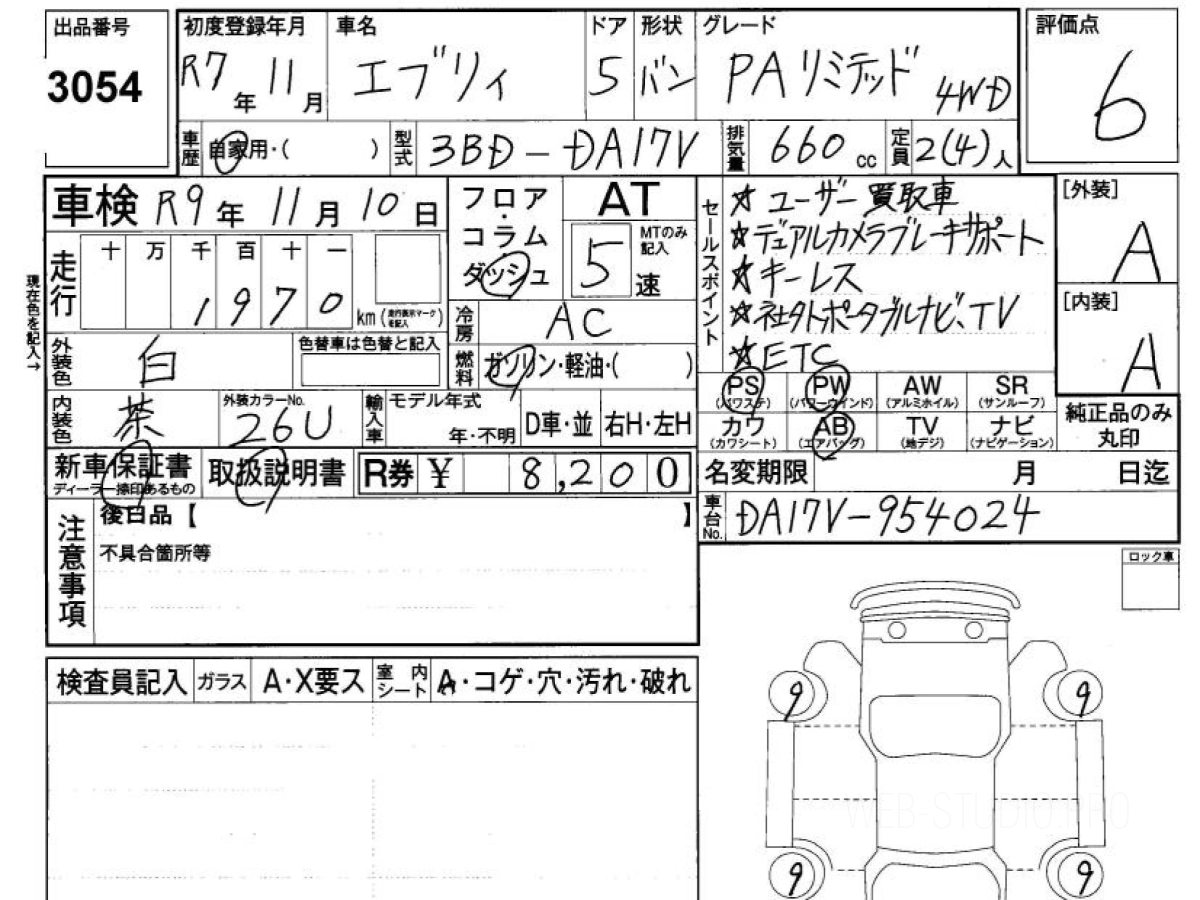 出品番号
3054
初度登録年月
R7年 11月
車名
エブリィ
ドア
5
形状
バン
グレード
PAリミテッド 4WD
評価点
6
車歴
自家用・( )
型式
3BD-DA17V
排気量
660 cc
定員
2(4)人
車検 R9年 11月 10日
走行
十 万 千 百 十 一
1 9 7 0 km
(走行表示マークを記入)
現在色を記入→
外装色
白
色替車は色替と記入
内装色
茶
外装カラーNo.
26U
フロア・コラム・ダッシュ
AT
5速
MTのみ記入
冷房
AC
燃料
ガソリン・軽油・( )
輸入車
モデル年式
年・不明
D車・並
右H・左H
セールスポイント
☆ユーザー買取車
☆デュアルカメラブレーキサポート
☆キーレス
☆社外ポータブルナビ、TV
☆ETC
[外装]
A
[内装]
A
PS (パワステ)
PW (パワーウインド)
AW (アルミホイル)
SR (サンルーフ)
カワ (カワシート)
AB (エアバッグ)
TV (地デジ)
ナビ (ナビゲーション)
純正品のみ丸印
新車保証書
ディーラー捺印あるもの
取扱説明書
R券 ¥ 8,200
名変期限 月 日迄
車台No.
DA17V-954024
注意事項
後日品【 】
不具合箇所等
ロック車
検査員記入
ガラス
A・X要ス
室内シート
A・コゲ・穴・汚れ・破れ
9
9
WEB-STUDIO.PRO
9
9